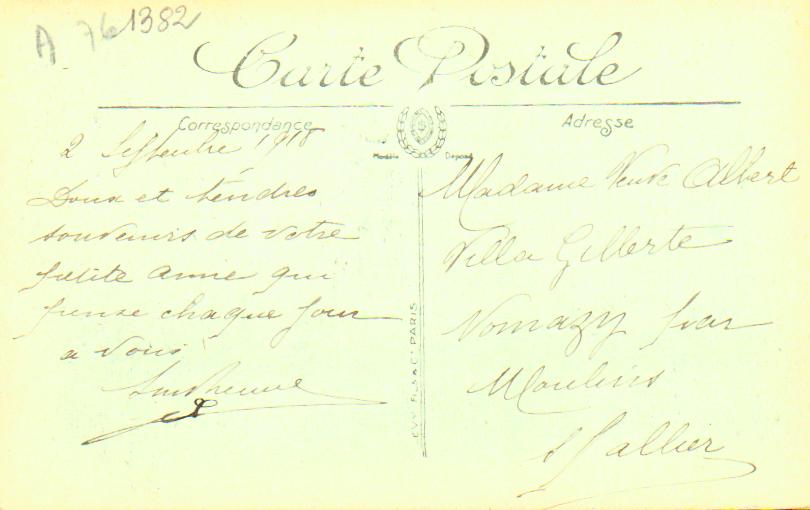 A 761382
Carte Postale
Correspondance
Adresse
Modèle Déposé
2 Septembre 1918
Doux et tendres
souvenirs de votre
petite amie qui
pense chaque jour
a vous
LEVY FILS & Cie PARIS
Madame Veuve Albert
Villa Gilberte
Nomazy par
Moulins
Allier